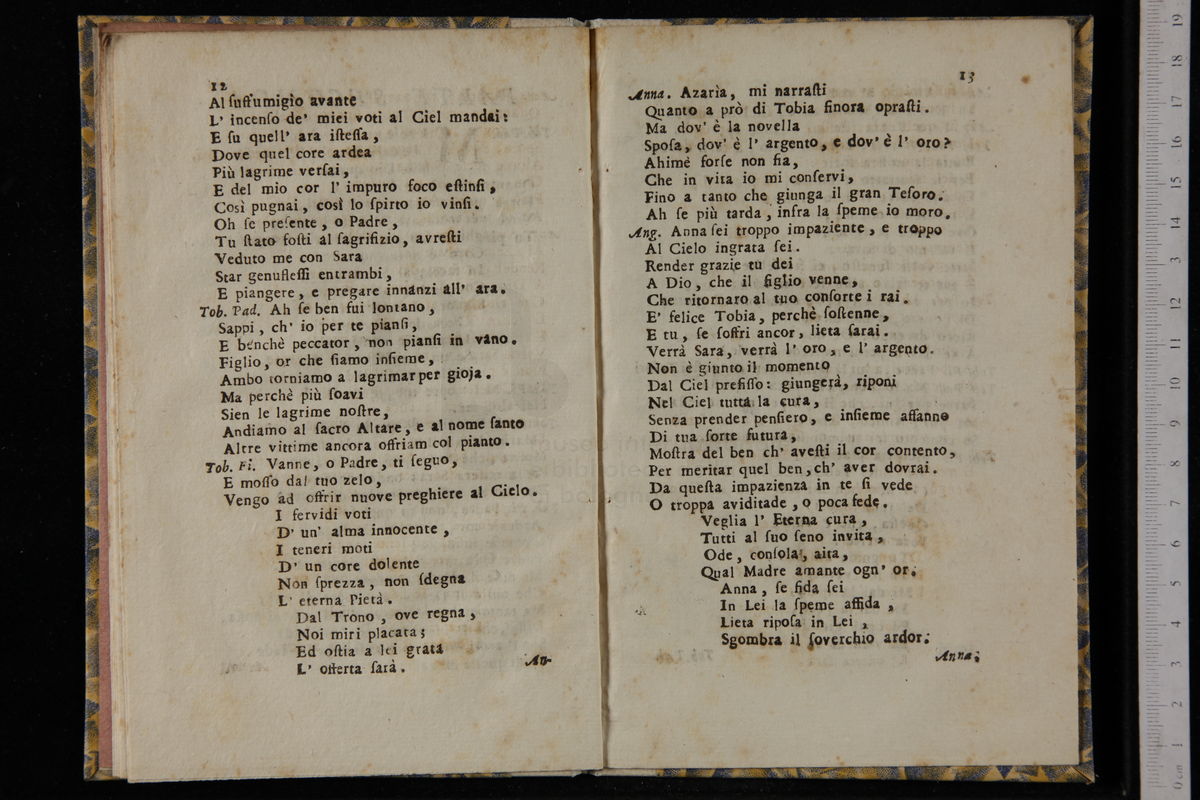 12
Al ſuffumigìo avante
L' incenſo de' miei voti al Ciel mandai:
E ſu quell' ara iſteſſa,
Dove quel core ardea
Più lagrime verſai,
E del mio cor l' impuro foco eſtinſi,
Così pugnai, così lo ſpirto io vinſi.
Oh ſe preſente, o Padre,
Tu ſtato foſti al ſagrifizio, avreſti
Veduto me con Sara
Star genufleſſi entrambi,
E piangere, e pregare innanzi all' ara.
Tob. Pad. Ah ſe ben fui lontano,
Sappi, ch' io per te pianſi,
E benchè peccator, non pianſi in vano.
Figlio, or che ſiamo inſieme,
Ambo torniamo a lagrimar per gioja.
Ma perchè più ſoavi
Sien le lagrime noſtre,
Andiamo al ſacro Altare, e al nome ſanto
Altre vittime ancora offriam col pianto.
Tob. Fi. Vanne, o Padre, ti ſeguo,
E moſſo dal tuo zelo,
Vengo ad offrir nuove preghiere al Cielo.
I fervidi voti
D' un' alma innocente,
I teneri moti
D' un core dolente
Non ſprezza, non ſdegna
L' eterna Pietà.
Dal Trono, ove regna,
Noi miri placata;
Ed oſtia a lei grata
L' offerta ſarà.
An-
13
Anna. Azarìa, mi narraſti
Quanto a prò di Tobia ſinora opraſti.
Ma dov' è la novella
Spoſa, dov' è l' argento, e dov' è l' oro?
Ahimè forſe non fia,
Che in vita io mi conſervi,
Fino a tanto che giunga il gran Teſoro.
Ah ſe più tarda, infra la ſpeme io moro.
Ang. Anna ſei troppo impaziente, e troppo
Al Cielo ingrata ſei.
Render grazie tu dei
A Dio, che il figlio venne,
Che ritornaro al tuo conſorte i rai.
E' felice Tobia, perchè ſoſtenne,
E tu, ſe ſoffri ancor, lieta ſarai.
Verrà Sara, verrà l' oro, e l' argento.
Non è giunto il momento
Dal Ciel prefiſſo: giungerà, riponi
Nel Ciel tutta la cura,
Senza prender penſiero, e inſieme affanno
Di tua ſorte futura,
Moſtra del ben ch' aveſti il cor contento,
Per meritar quel ben, ch' aver dovrai.
Da queſta impazienza in te ſi vede
O troppa aviditade, o poca fede.
Veglia l' Eterna cura,
Tutti al ſuo ſeno invita,
Ode, conſola, aita,
Qual Madre amante ogn' or.
Anna, ſe fida ſei
In Lei la ſpeme affida,
Lieta ripoſa in Lei,
Sgombra il ſoverchio ardor.
Anna;